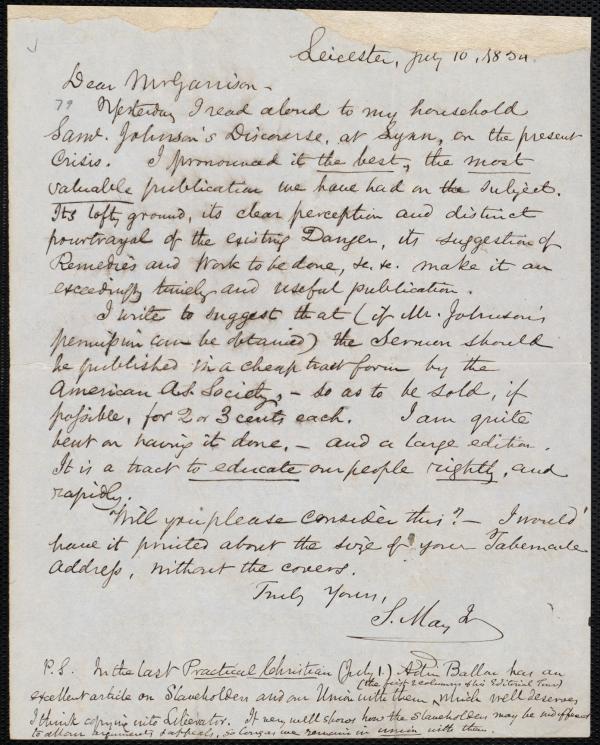 Leicester, July 10, 1854.
Dear Mr Garrison -
79 Yesterday I read aloud to my household
Saml. Johnson's Discourse, at Lynn, on the present
Crisis. I pronounced it the best, the most
valuable publication we have had on the subject.
Its lofty ground, its clear perception and distinct
pourtrayal of the existing Danger, its suggestion of
Remedies and Work to be done, &c. &c. make it an
exceedingly timely and useful publication.
I write to suggest that (if Mr. Johnson's
permission can be obtained) the Sermon should
be published in a cheap tract form by the
American A.S. Society, - so as to be sold, if
possible, for 2 or 3 cents each. I am quite
bent on having it done, - and a large edition.
It is a tract to educate our people rightly, and
rapidly.
Will you please consider this? - I would
have it printed about the size of your Tabernacle
Address, without the covers.
Truly Yours,
S. May Jr
P.S. In the last Practical Christian (July 1.) Adin Ballou has an
(the first 2 columns of his Editorial)
excellent article on Slaveholders and our Union with them, which well deserves
I think copying into Liberator. It very well shows how the Slaveholders may be indifferent
to all our arguments & appeals, so long as we remain in union with them.